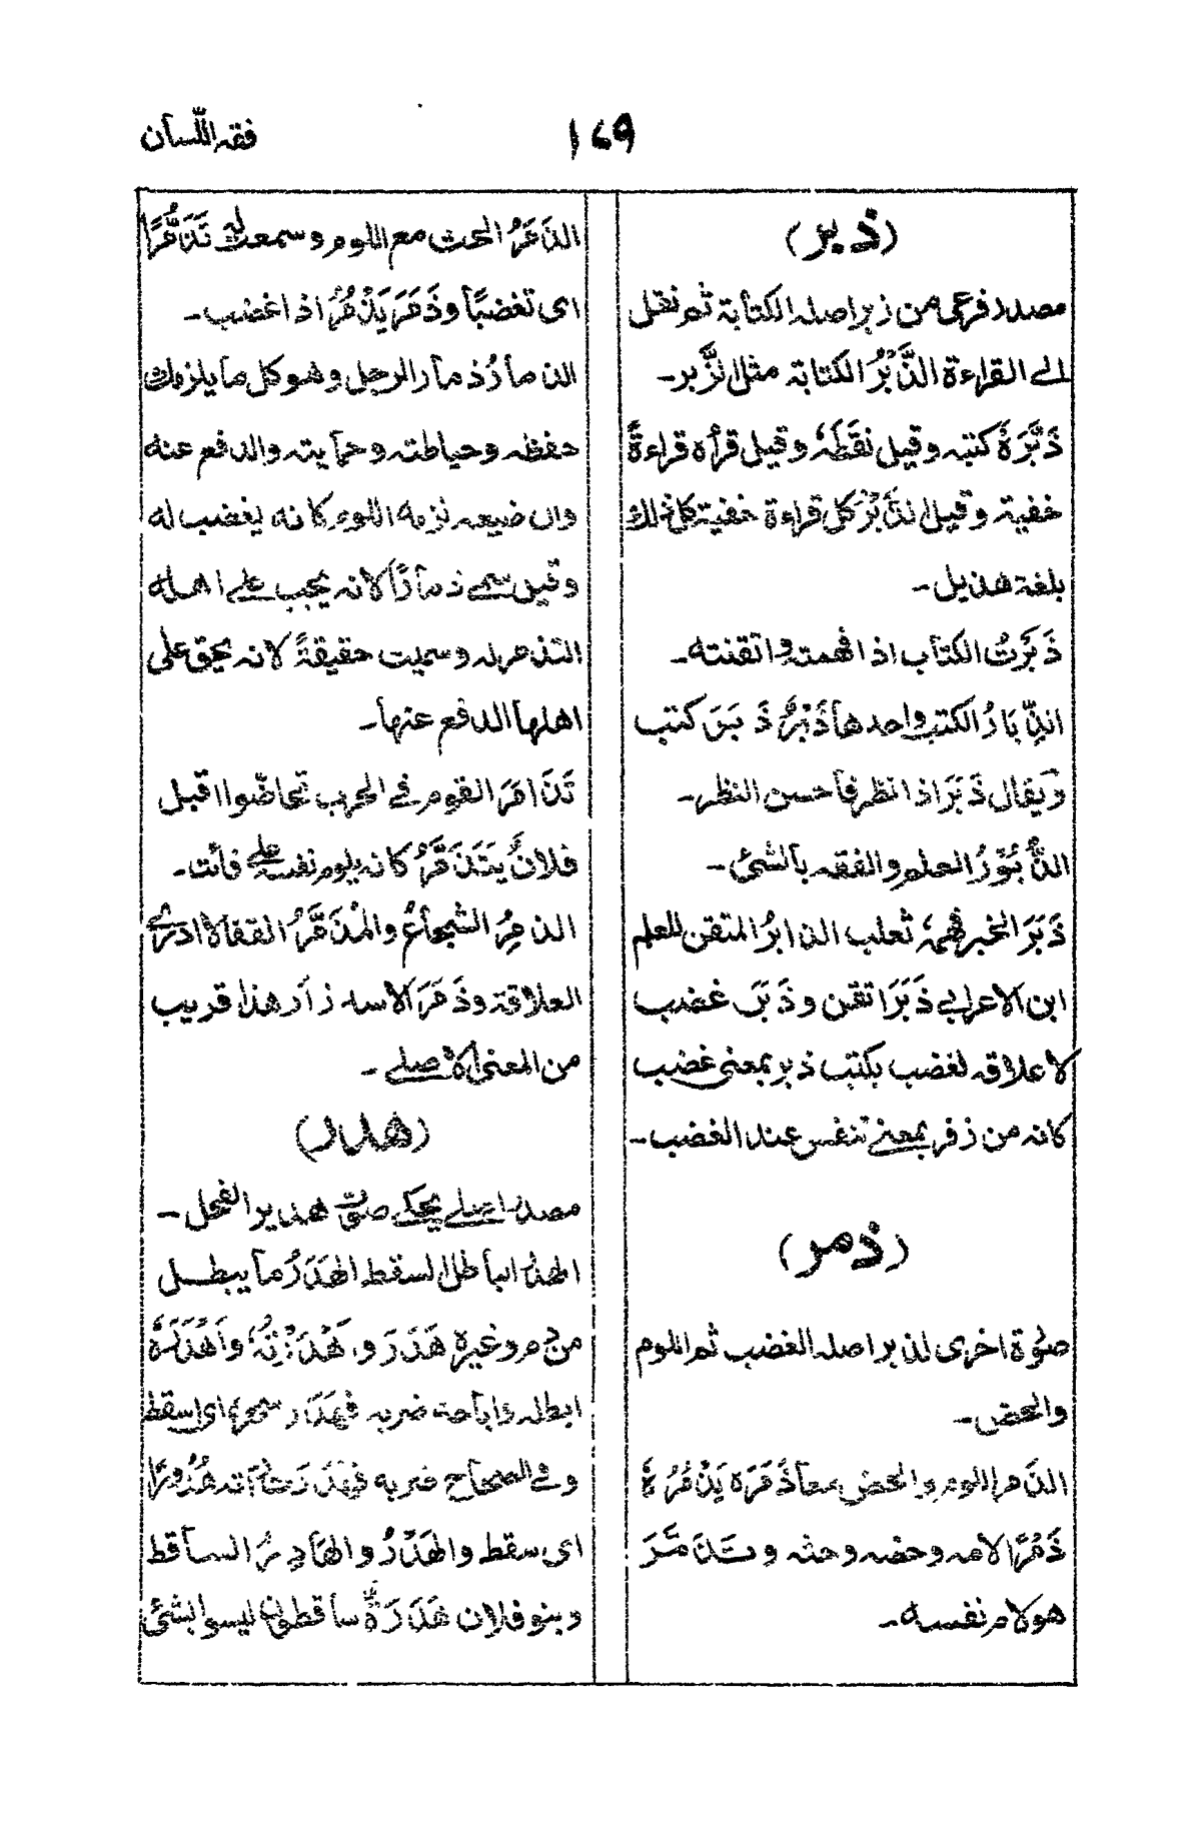 فقه اللسان
١٦٩
(ذبر)
مصدر فرعی من زبر اصله الكتابة ثم نقل
الے القراءة الذَّبْرُ الكتابة مثل الزَّبر۔
ذَبَّرَهٗ كتبه وقيل نقَطَهٗ وقيل قرأه قراءةً
خفية وقيل الذَّبْرُ كل قراءة خفية كل ذلك
بلغة هذيل۔
ذَبَرَتُ الكتاب اذا فهمته واتقنته۔
الذِّبَارُ الكتب واحدها ذَبْرٌ ذَبَرَ كتب
ويقال ذَبَرَ اذا نظر فأحسن النظر۔
الذُّبُوْرُ العلم والفقه بالشئ۔
ذَبَرَ الخبر فهمهٗ ثعلب الذابرُ المتقن للعلم
ابن الاعرابي ذَبَرَ اتقن وذَبَرَ غضب
لاعلاقه لغضب بكتب ذبر بمعنى غضب
كانه من زفر بمعنے تنفس عند الغضب۔
(ذمر)
صوُة اخرى لذبر اصله الغضب ثم اللوم
والحض۔
الذَمر اللوم والحض معاً ذَمَرَه يَذْمُرُهٗ
ذَمْرًا لامه وحضه وحثه وتَذَمَّرَ
هو لام نفسه۔
الذَمَرُ الحث مع اللوم وسمعت له تَذَمُّرًا
اى تغضبًا وذَمَرَ يَذْمُرُ اذا غضب۔
الذمارُ ذمار الرجل وهو كل ما يلزمك
حفظه وحياطته وحمايته والدفع عنه
وان ضيعه لزمه اللوم كانه يغضب له
وقيل سمے ذمارًا لانه يجب علے اهله
التذمر له وسميت حقيقةً لانه يحق على
اهلها الدفع عنها۔
تَذَامَرَ القوم فے الحرب تحاضّوا اقبل
فلانٌ يَتَذَمَّرُ كانه يلوم نفسه علے فائت۔
الذمِرُ الشجاعُ والمُذَمَّرُ القفا لا ادرے
العلاقة وذَمَرَ الاسد زأر هذا قريب
من المعنى الاصلے۔
(هدر)
مصدر اصلے يحكے صوت هدير الفحل۔
الهدْر الباطل السقط الهَدَرُ ما يبطل
من دم وغيره هَدَرَ و هَدَرْتُهٗ واَهْدَرَهٗ
ابطله واباحه ضربه فهَدَر سحره اى اسقط
وفے الصحاح ضربه فهَدَرَت رئته هُدُورًا
اى سقط والهَدْرُ والهادِرُ الساقط
وبنو فلان هَدَرَةٌ ساقطون ليسوا بشئ